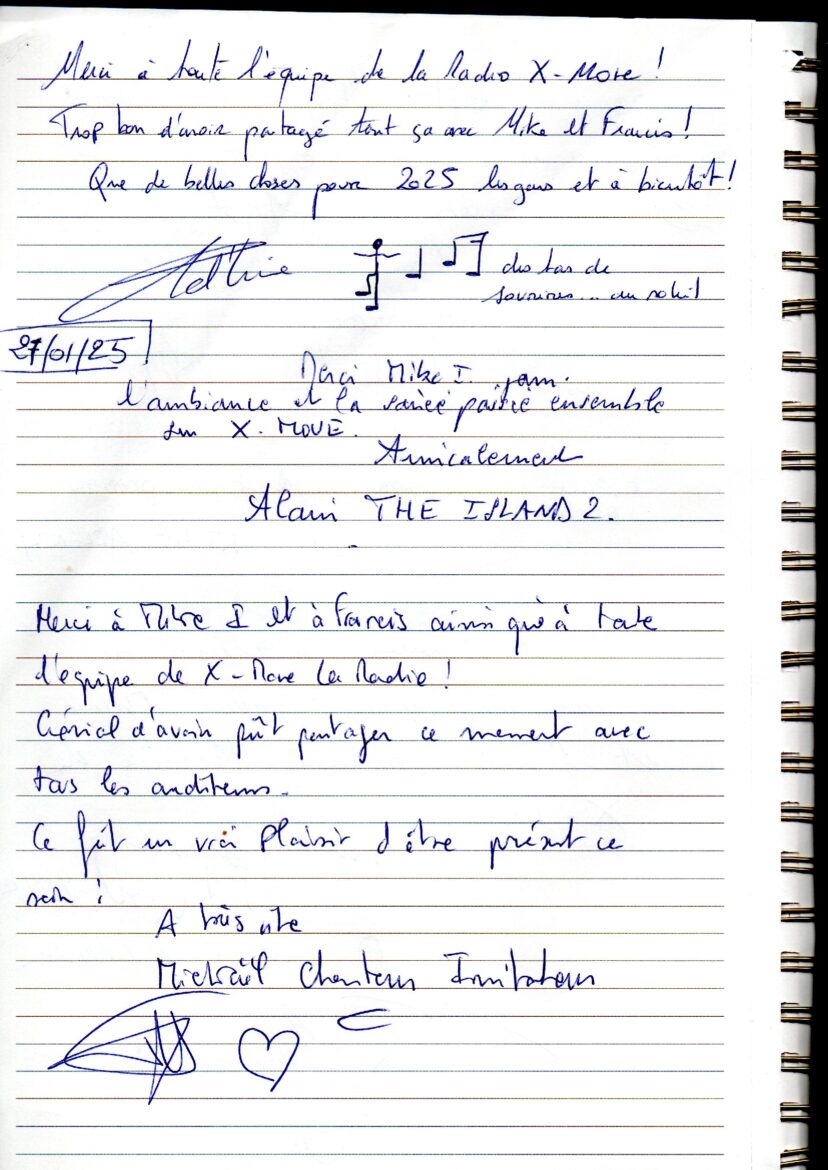 Merci à toute l'équipe de la Radio X-Move !
Trop bon d'avoir partagé tout ça avec Mike et Francis !
Que de belles choses pour 2025 les gars et à bientôt !
des tas de
sourires... au soleil
27/01/25
Merci Mike I. pour
l'ambiance et la soirée passée ensemble
sur X. MOVE.
Amicalement
Alain THE ISLAND 2.
Merci à Mike I et à Francis ainsi qu'à toute
l'équipe de X-Move La Radio !
Génial d'avoir pût partager ce moment avec
tous les auditeurs.
Ce fût un vrai Plaisir d'être présent ce
soir !
A très vite
Mickaël Chanteur Imitateur